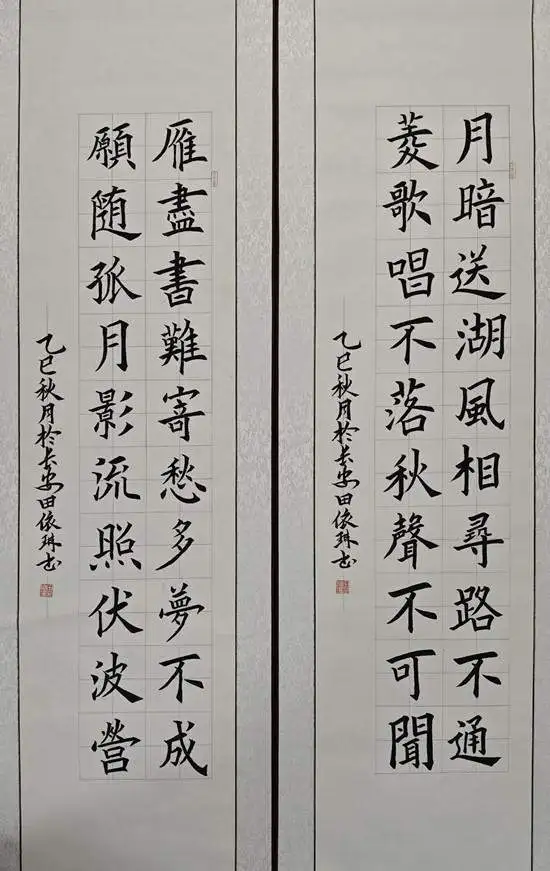 月暗送湖風相尋路不通
菱歌唱不落秋聲不可聞
乙巳秋月於长安田依琳书
雁盡書難寄愁多夢不成
願随孤月影流照伏波營
乙巳秋月於长安田依琳书